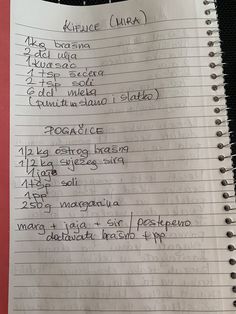 KIFLICE (MIRA)
1 kg brašna
2 dcl ulja
1 kvasac
1 tsp šećera
2 tsp soli
6 dcl mleka
(puniti m slano i slatko)
POGAČICE
1/2 kg oštrog brašna
1/2 kg svježeg sira
1 jaje
1 tsp soli
1 pp
250g margarina
marg + jaja + sir / postepeno
dodavati brašno + pp